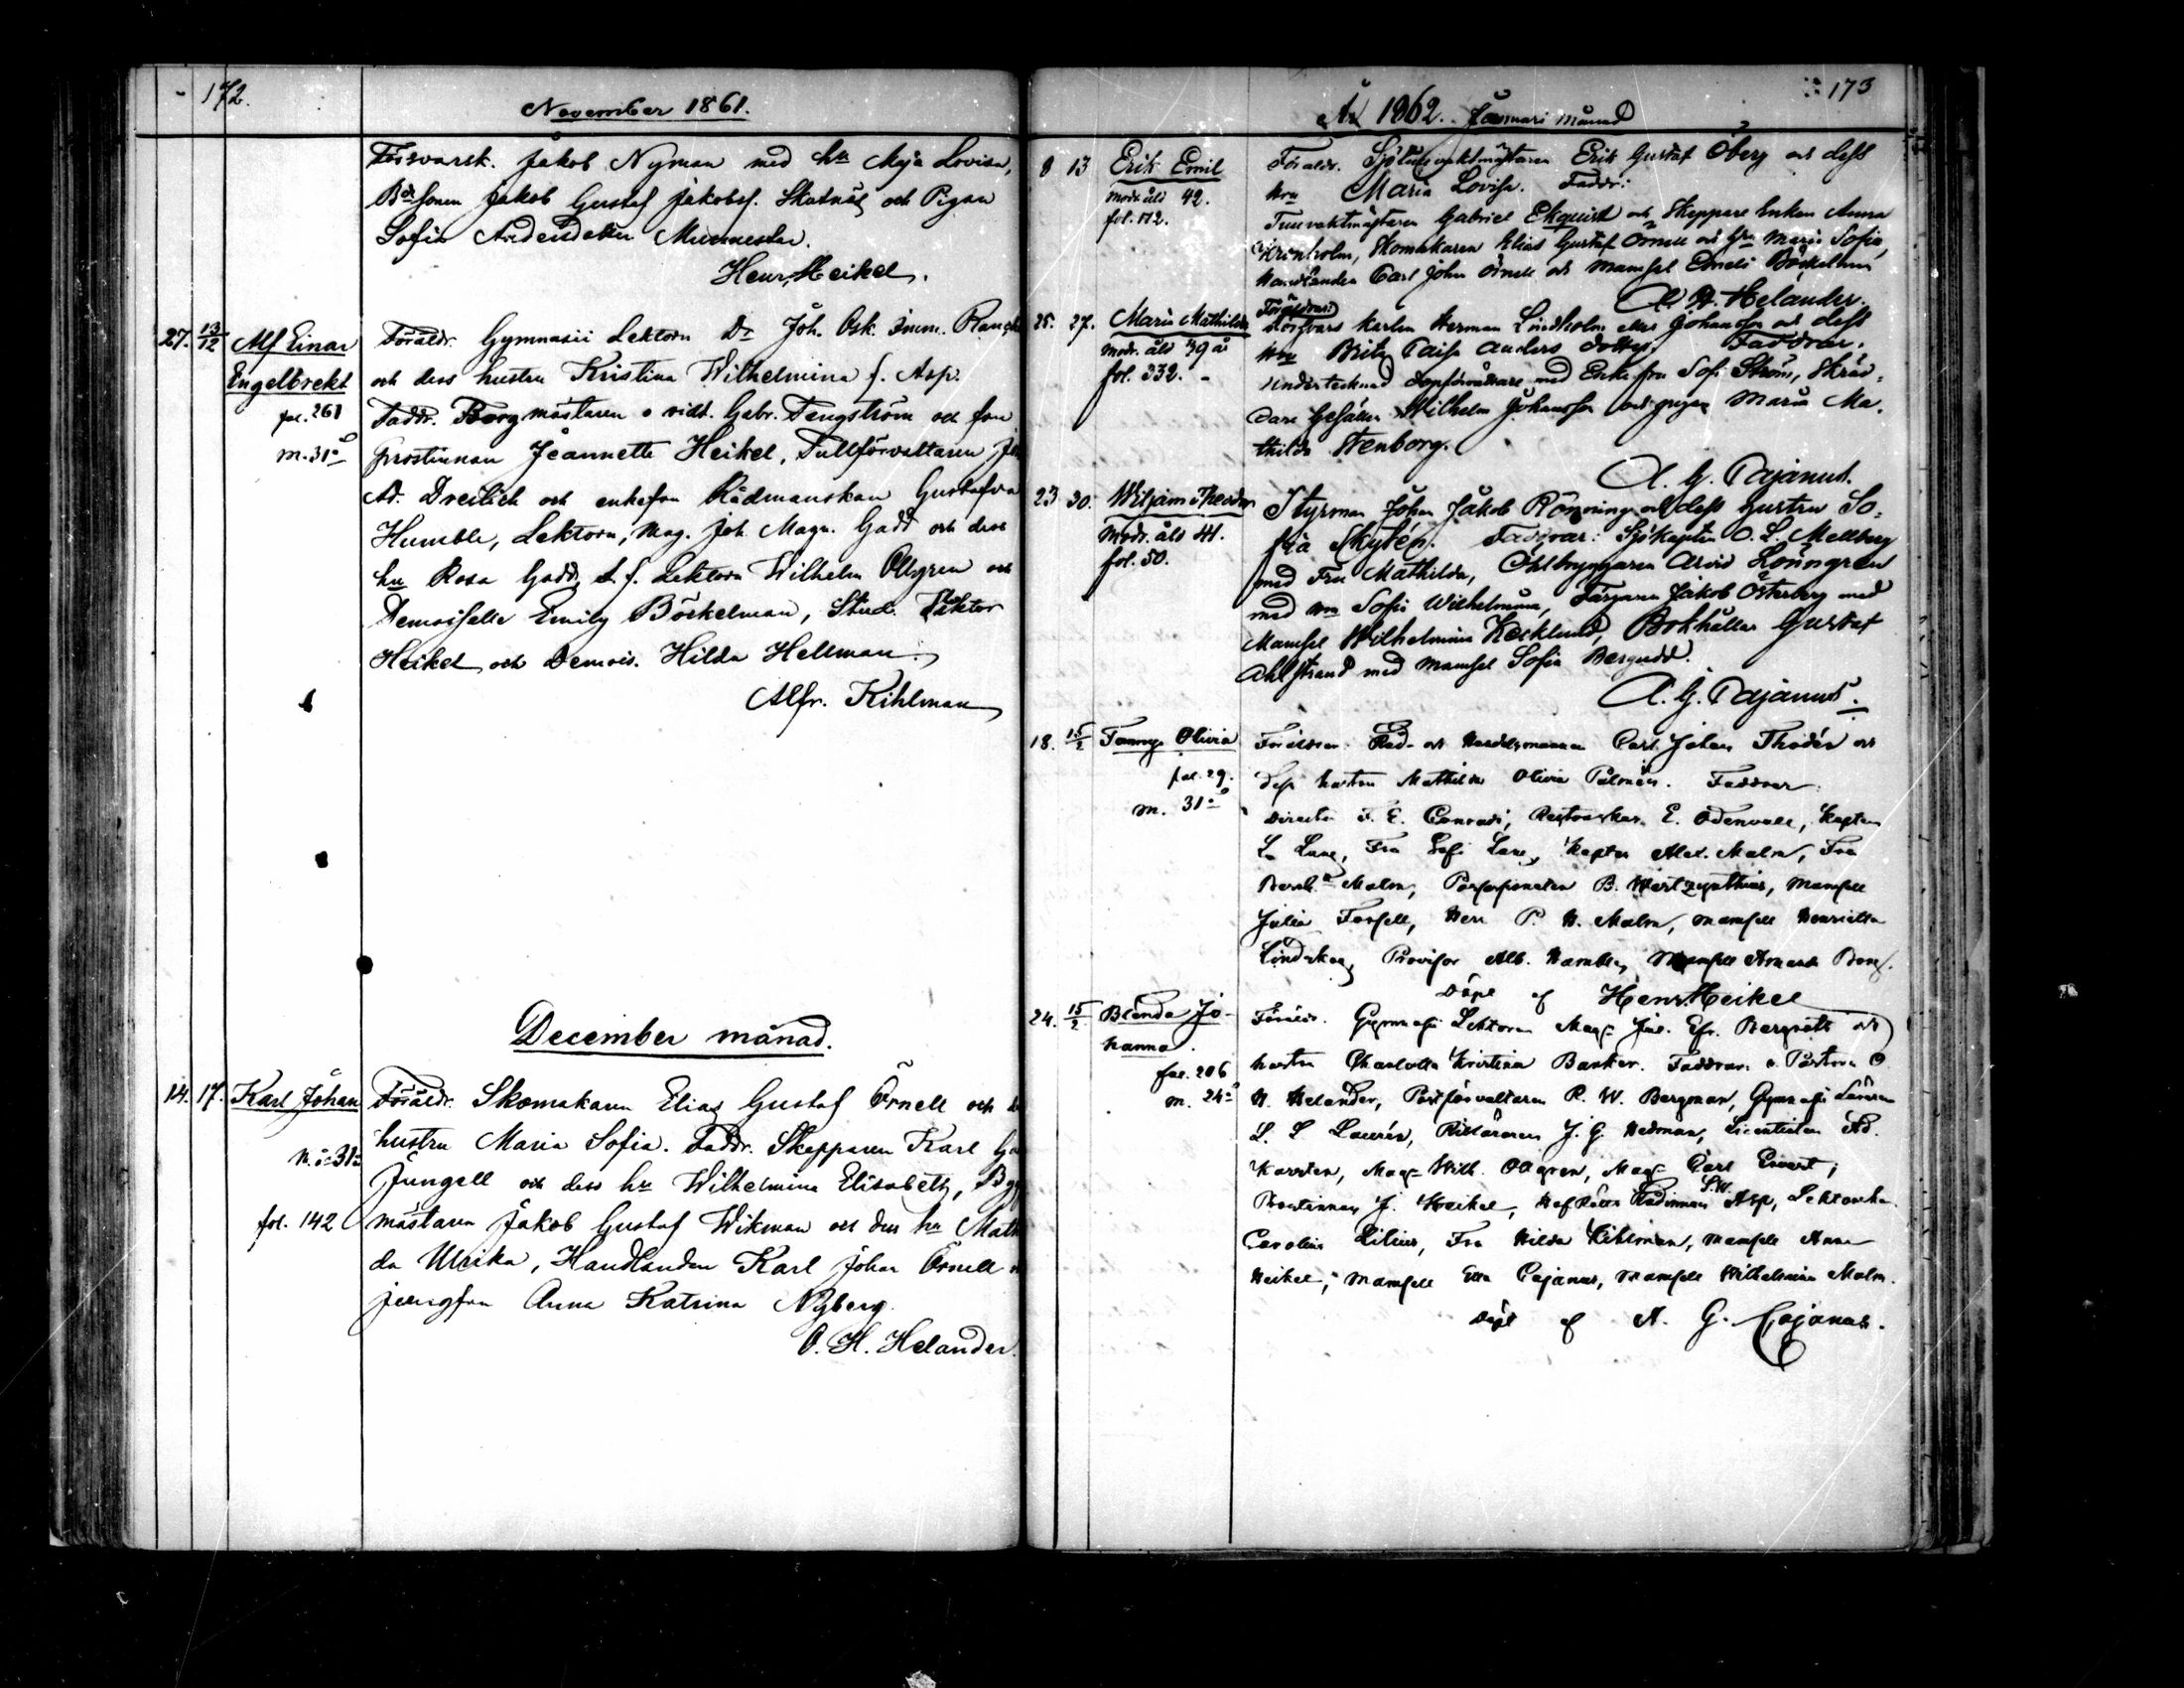 172.
November 1861.
Försvarsk. Jakob Nyman med hu Maja Lovisa,
Bdesonen Jakob Gustaf Jakobss. Skatnäs och Pigan
Sofia Andersdotter
Henr. Heikel.
27. 13/12 Alf Einar
Engelbrekt
fol. 261
m. 31 å
Föräldr. Gymnasii Lektorn Dr Joh. Osk. Imm.
och dess hustru Kristina Wilhelmina f. Asp.
Faddr. Borgmästaren o ridd. Gabr. Tengström och fru
prostinnan Jeannette Heikel, Tullförvaltaren
Ad. Dreilick och enkefru Rådmanskan Gustafva
Humble, Lektorn, Mag. Joh. Magn. Gadd och dess
hu Rosa Gadd, t. f. Lektorn Wilhelm Ollgren och
Demoiselle Emily Böckelman, Stud. Viktor
Heikel och Demois. Hilda Hellman.
Alfr. Kihlman
December månad.
14. 17. Karl Johan
m. å. 31
fol. 142
Föräldr. Skomakaren Elias Gustaf Örnell och
hustru Maria Sofia. Faddr. Skepparen Karl
Jungell och dess hu Wilhelmina Elisabeth,
mästaren Jakob Gustaf Wikman och dess hu
da Ulrika, Handlanden Karl Johan Örnell
jungfru Anna Katrina Nyberg.
O. H. Helander.
173
År 1862. Januari månad
8 13 Erik Emil
Modr. åld 42.
fol. 112.
Föräldr. Erik Gustaf Öberg och dess
Hru Maria Lovisa. Faddr:
Tullvaktmästaren Gabriel Ekquist och Skeppare Enkan Anna
Kronholm, Skomakaren Elias Gustaf Örnell och Hru Maria Sofia,
Handlanden Carl John Örnell och Mamsel Emeli Böckelman
O. H. Helander.
25. 27. Maria Mathilda
Modr. åld 39 år
fol. 332.
Föräldrar:
Försvars Karlen Herman Lindholm eller Johansson och dess
Hru Brita Caisa Anders dotter. Faddrar.
undertecknad Dopförrättare med Enkefru Sofi Ström, Skräd-
dare Gesällen Wilhelm Johansson och pigan Maria Ma-
thilda Stenborg.
A. G. Cajanus.
23 30. Wiljam Theodor
Modr. åld 41.
fol. 50.
Styrman Johan Jakob Rönning och dess hustru So-
fia Skytén. Faddrar: Sjökapten O. L. Mellberg
med Fru Mathilda, Arvid Lönngren
med Hru Sofia Wilhelmina, Färgaren Jakob Österberg med
Mamsel Wilhelmina Kecklund, Bokhållar Gustaf
Ahlstrand med Mamsel Sofia Bergudd.
A. G. Cajanus.
18. 15/2 Fanny Olivia
fol. 29.
m. 31 å
Föräldrar: Råd- och Handelsmannen Carl Johan Thodén och
dess hustru Mathilda Olivia Palmén. Faddrar:
Director F. E. Conradi, E. Odenvall, Kapten
L. Lang, Fru Sofi Lang, Kapten Alex. Malm, Fru
Malm, B. Hertzynthius, Mamsell
Julia Forsell, Herr P. H. Malm, Mamsell Henrietta
Lindskog, Provisor Alb. Hamble, Mamsell Amanda
Döpt af Henr. Heikel
24. 15/2 Blenda Jo-
hanna.
fol. 206
m. 24 å
Föräldr. Gymnasii Lektoren Mag. Jul. Efr. Bergroth och
hustru Charlotta Kristina Banker. Faddrar: Pastorn O.
H. Helander, Postförvaltaren R. W. Bergman, Gymnasii Läraren
L. L Laurén, Riktaren J. G. Hedman, Licentiaten Ad.
Karsten, Mag. Wilh. Ollgren, Mag. Carl Ervast;
Prostinnan J. Heikel, Hofrätts Rådinnan S.W. Asp, Lektorska
Carolina Lilius, Fru Hilda Kihlman, Mamsell Anna
Heikel, Mamsell Emma Cajanus, Mamsell Wilhelmina Malm.
Döpt af A. G. Cajanus.